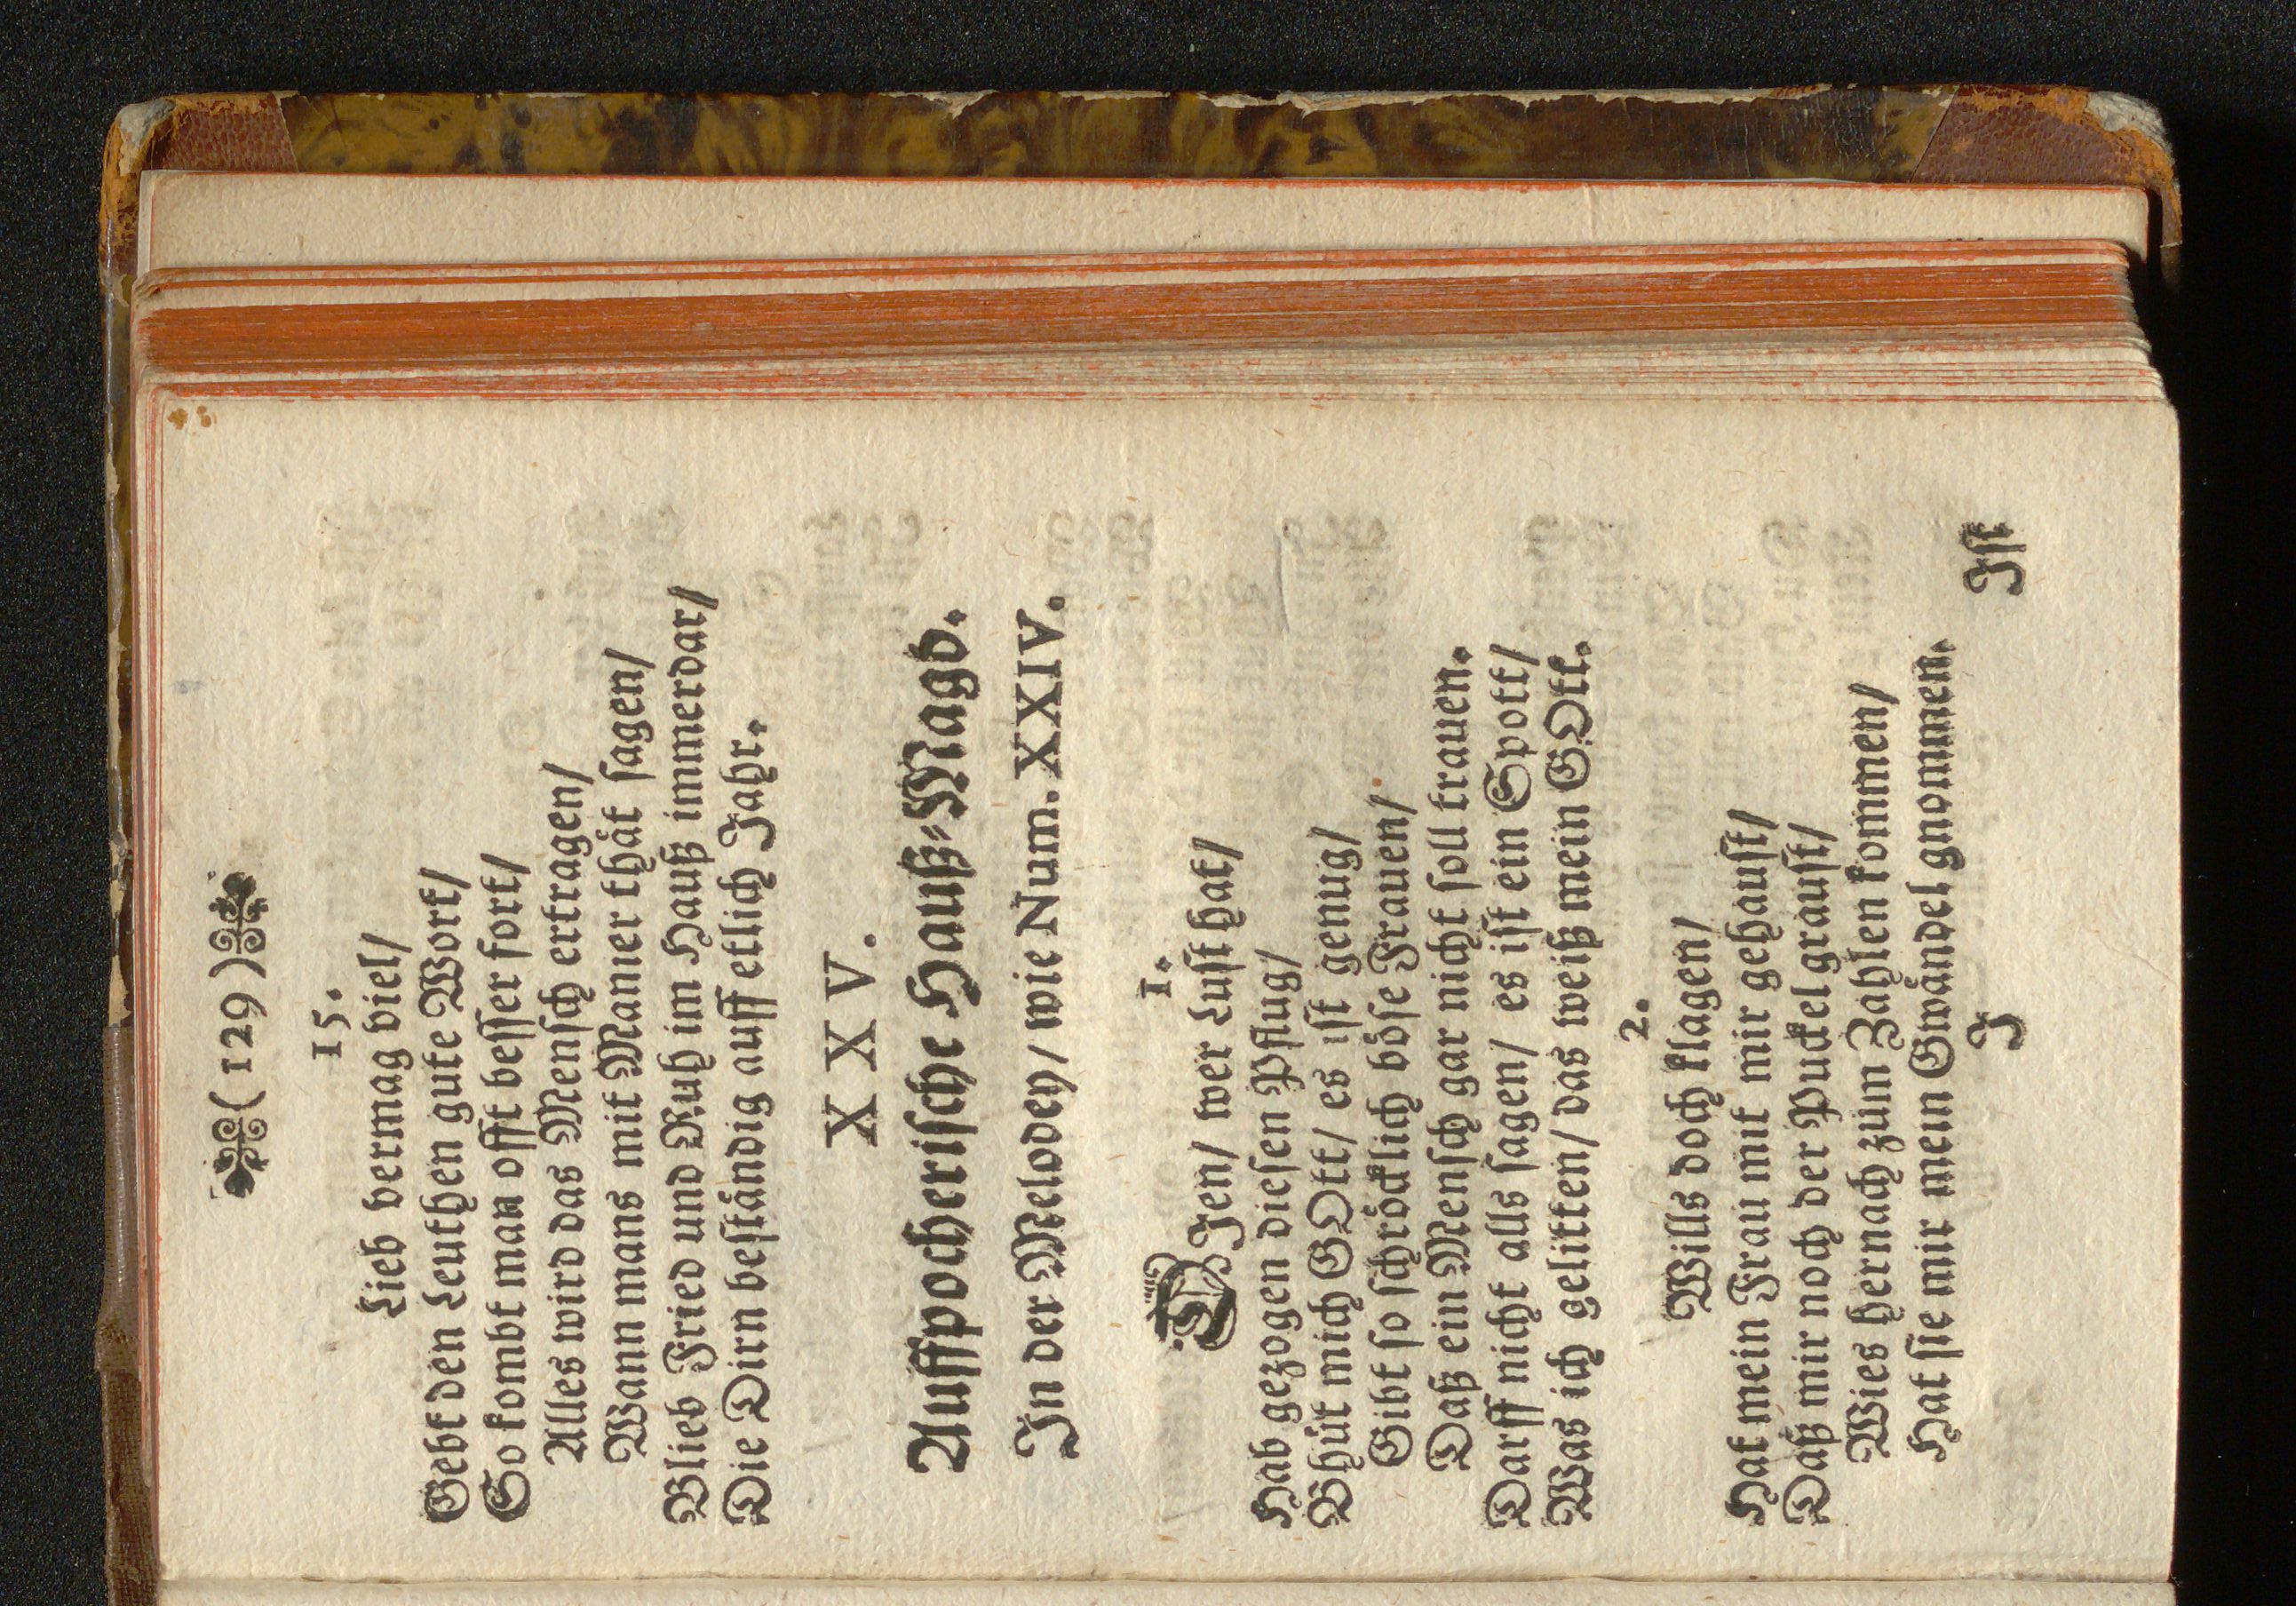 ( 129 )
15.
Lieb vermag viel/
Gebt den Leuthen gute Wort/
So kombt man offt besser fort/
Alles wird das Mensch ertragen/
Wann mans mit Manier thät sagen/
Blieb Fried und Ruh im Hauß immerdar/
Die Dirn beständig auff etlich Jahr.
XXV.
Auffpocherische Hauß-Magd.
In der Melodey/ wie Num. XXIV.
1.
DJen/ wer Lust hat/
Hab gezogen diesen Pflug/
Bhüt mich GOtt/ es ist genug/
Gibt so schröcklich böse Frauen/
Daß ein Mensch gar nicht soll trauen.
Darff nicht alls sagen/ es ist ein Spott/
Was ich gelitten/ das weiß mein GOtt.
2.
Wills doch klagen/
Hat mein Frau mit mir gehaust/
Daß mir noch der Puckel graust/
Wies hernach züm Zahlen kommen/
Hat sie mir mein Gwändel gnommen.
J Ist